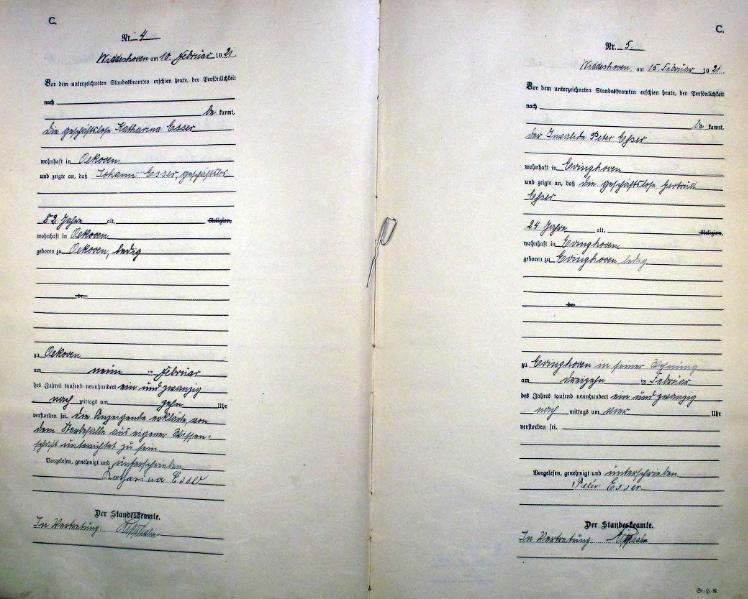 C.
Nr. 4
Widdeshoven am 10 Februar 1921
Vor dem unterzeichneten Standesbeamten erschien heute, der Persönlichkeit
nach
be kannt,
die geschäftslose Katharina Esser
wohnhaft in Oekoven
und zeigte an, daß Johann Esser, geschäftslos
52 Jahre alt, Religion,
wohnhaft in Oekoven
geboren zu Oekoven, ledig
der
zu Oekoven
am neun ten Februar
des Jahres tausend neunhundert ein und zwanzig
nach mittags um zehn Uhr
verstorben sei. Die Anzeigende erklärte von
dem Sterbefalle aus eigener Wissen-
schaft unterrichtet zu sein
Vorgelesen, genehmigt und unterschrieben
Katharina Esser
Der Standesbeamte.
In Vertretung
C.
Nr. 5
Widdeshoven am 15 Februar 1921
Vor dem unterzeichneten Standesbeamten erschien heute, der Persönlichkeit
nach
be kannt,
der Invalide Peter Esser
wohnhaft in Evinghoven
und zeigte an, daß die geschäftslose Gertrud
Esser
24 Jahre alt, Religion,
wohnhaft in Evinghoven
geboren zu Evinghoven ledig
der
zu Evinghoven in seiner Wohnung
am dreizehn ten Februar
des Jahres tausend neunhundert ein und zwanzig
nach mittags um Uhr
verstorben sei.
Vorgelesen, genehmigt und unterschrieben
Peter Esser
Der Standesbeamte.
In Vertretung